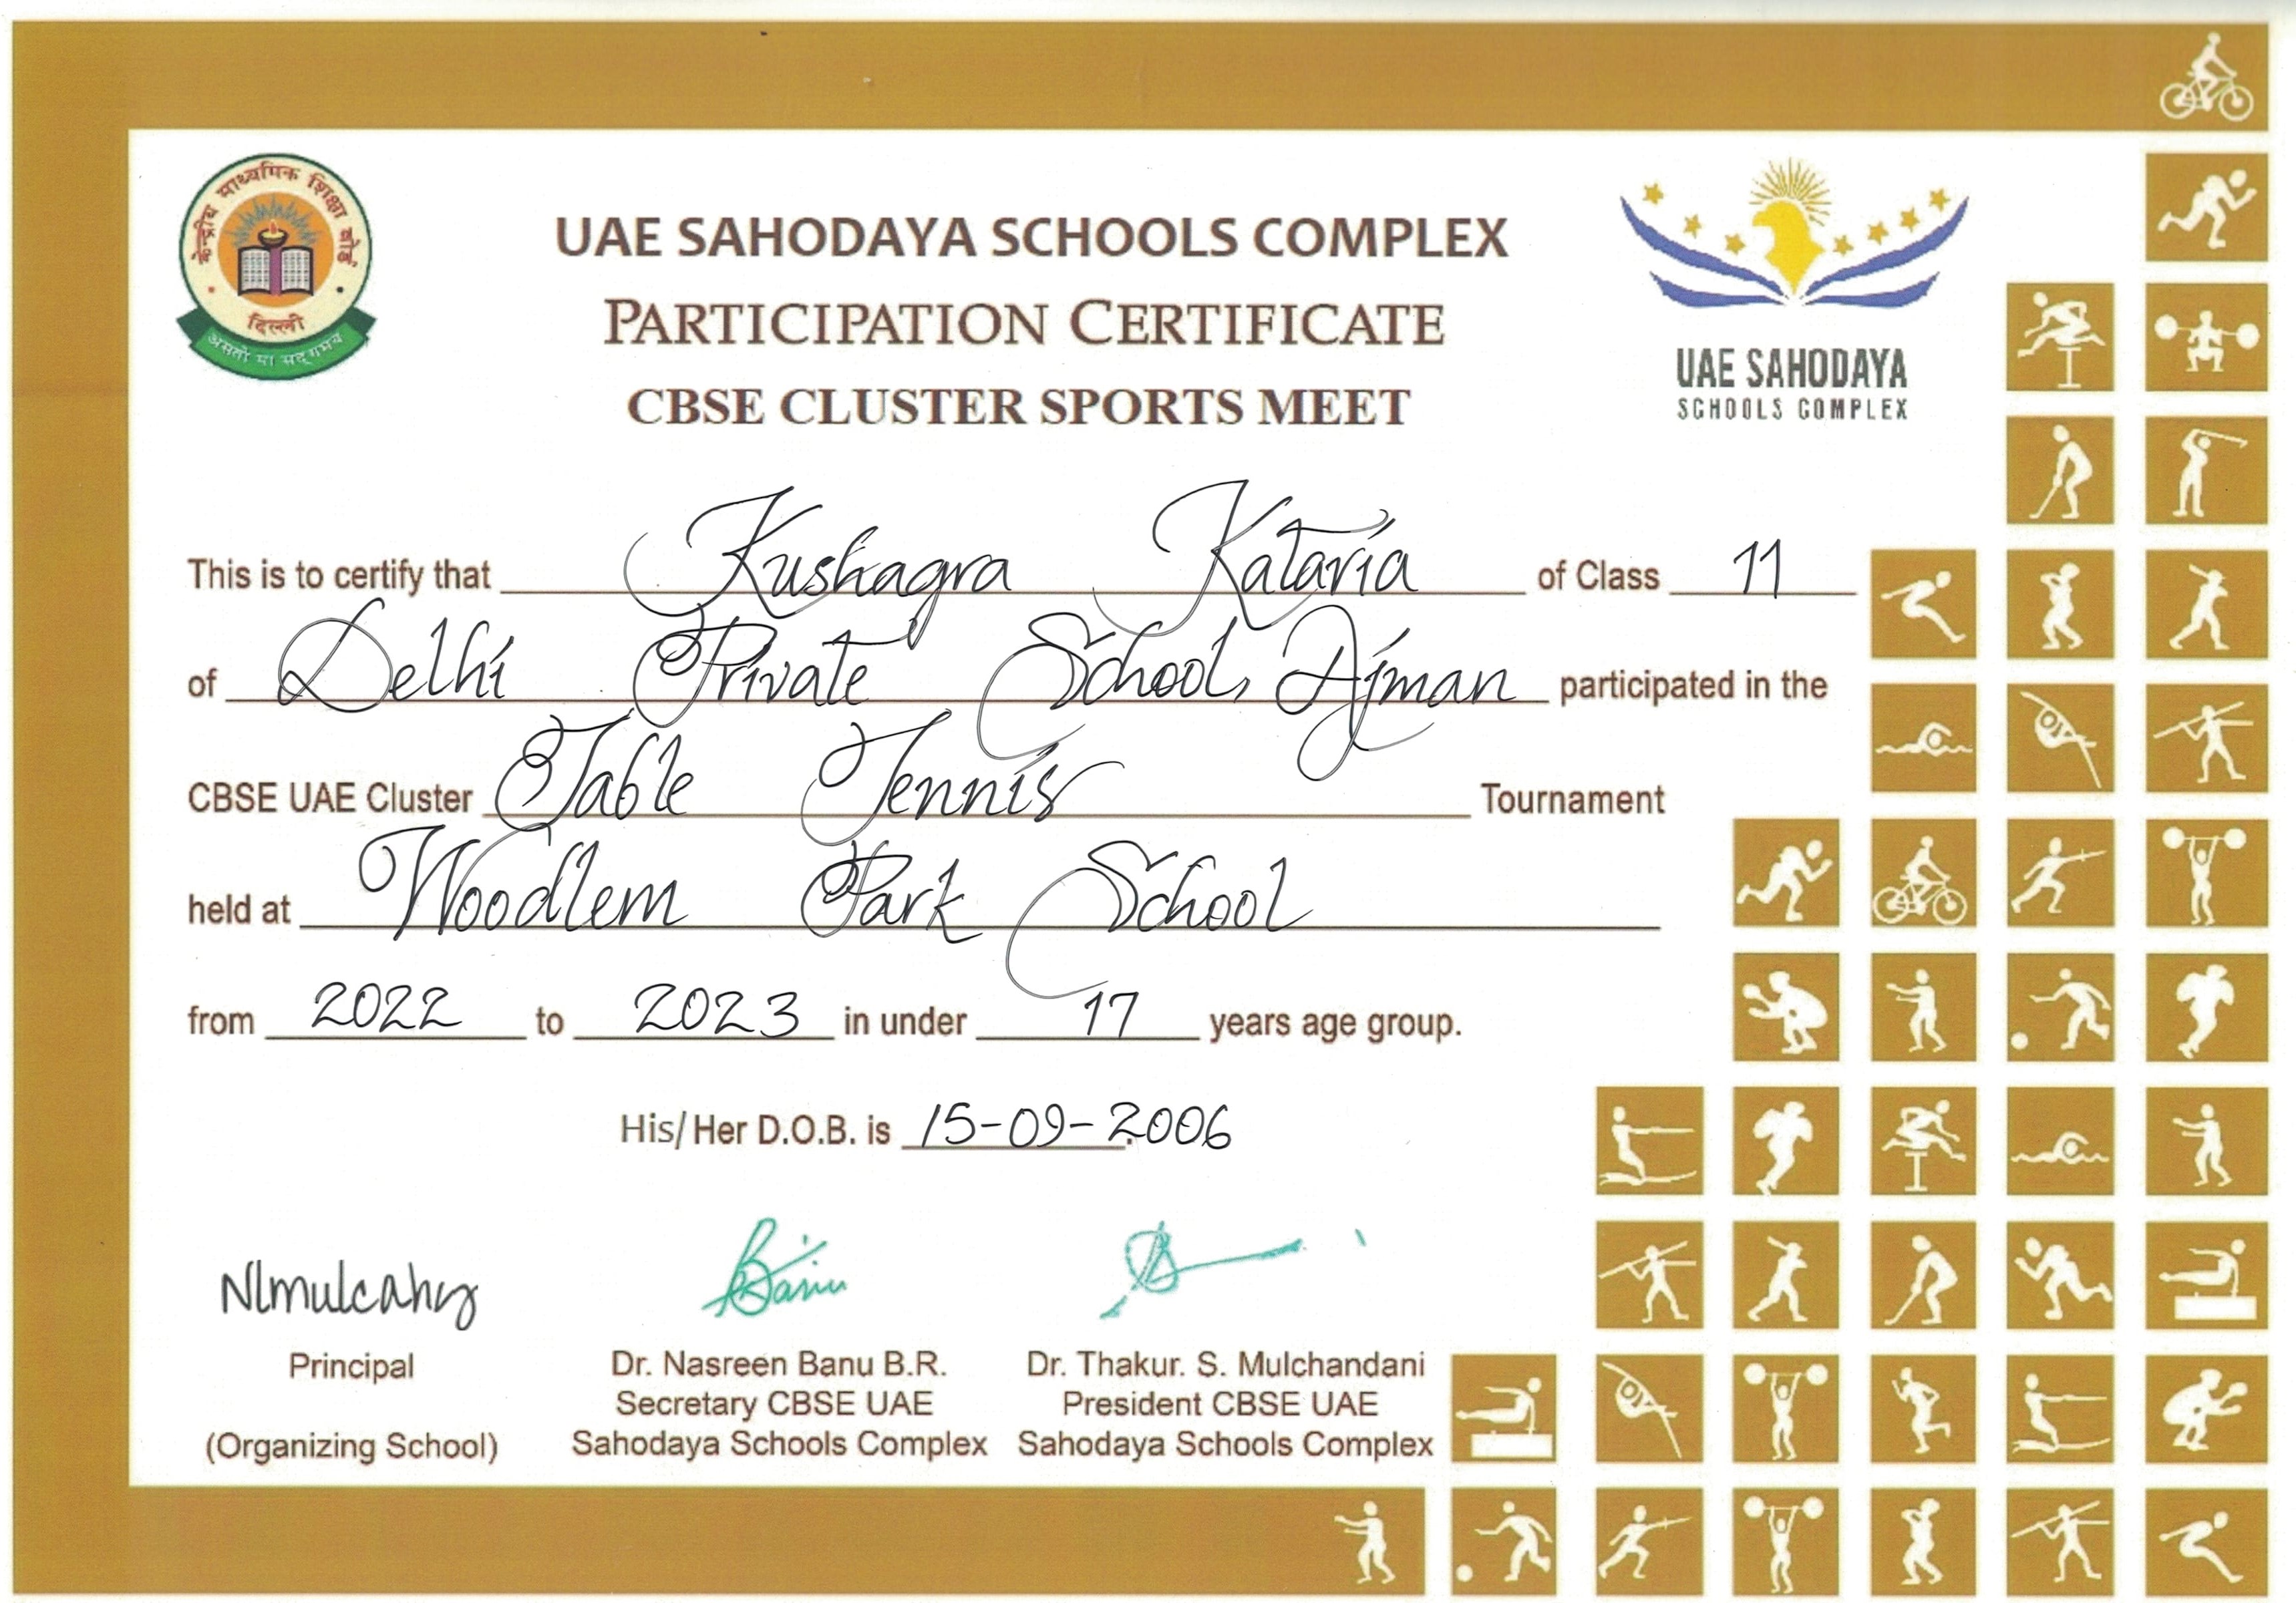 केन्द्रीय माध्यमिक शिक्षा बोर्ड
दिल्ली
असतो मा सद्गमय
UAE SAHODAYA SCHOOLS COMPLEX
PARTICIPATION CERTIFICATE
CBSE CLUSTER SPORTS MEET
UAE SAHODAYA
SCHOOLS COMPLEX
This is to certify that Kushagra Kataria of Class 11
of Delhi Private School, Ajman participated in the
CBSE UAE Cluster Table Tennis Tournament
held at Woodlem Park School
from 2022 to 2023 in under 17 years age group.
His/Her D.O.B. is 15-09-2006
Nlmulcahy
Principal
(Organizing School)
B Banu
Dr. Nasreen Banu B.R.
Secretary CBSE UAE
Sahodaya Schools Complex
Dr. Thakur. S. Mulchandani
President CBSE UAE
Sahodaya Schools Complex